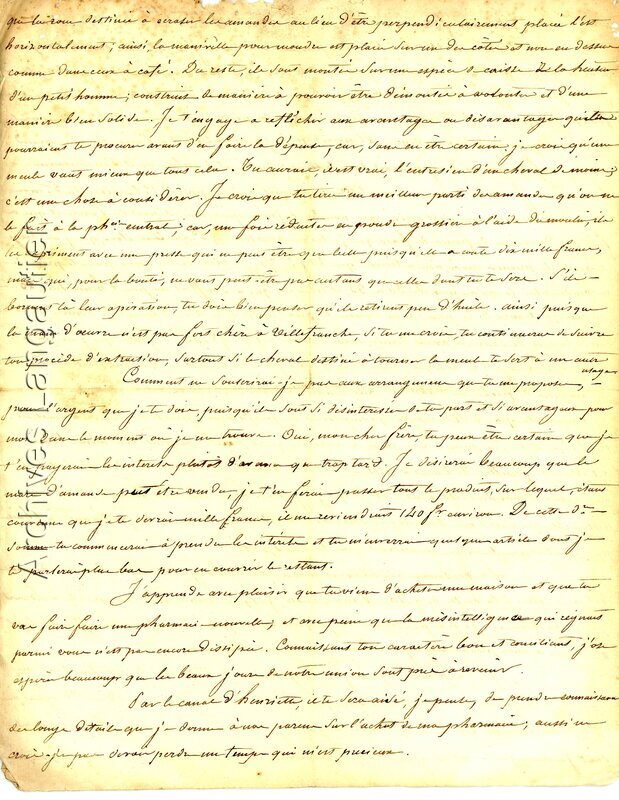 que la roue destinée à écraser les amandes au lieu d'être perpendiculairement placée l'est
horizontalement; ainsi, la manivelle pour moudre est placée sur un des côtés et non en dessus
comme dans ceux à café. Du reste, ils sont montés sur une espèce de caisse de la hauteur
d'un petit homme; construits de manière à pouvoir être démontés à volonté et d'une
manière bien solide. Je t'engage à réfléchir aux avantages ou désavantages qu'ils
pourraient te procurer avant d'en faire la dépense, car, sans en être certain, je crois qu'une
meule vaut mieux que tout cela. Tu aurais, il est vrai, l'entretien d'un cheval de moins;
c'est une chose à considérer. Je crois que tu tires un meilleur parti des amandes qu'on ne
le fait à la phie centrale; car, une fois réduites en poudre grossière à l'aide du moulin, ils
les expriment avec une presse qui ne peut être que belle puisqu'elle a coûté dix mille francs,
mais qui, pour la bonté, ne vaut peut être pas autant que celle dont tu te sers. S'ils
bornent là leur opération, tu dois bien penser qu'ils retirent peu d'huile. ainsi puisque
la main d'œuvre n'est pas fort chère à Villefranche, si tu me crois, tu continueras de suivre
ton procédé d'extraction, surtout si le cheval destiné à tourner la meule te sert à un autre
usage.
Comment ne souscrirai-je pas aux arrangements que tu me proposes,
pour l'argent que je te dois, puisqu'ils sont si désintéressés de ta part et si avantageux pour
moi dans le moment où je me trouve. Oui, mon cher frère, tu peux être certain que je
t'en payerai les intérêts plutôt d'avance que trop tard. Je désirerais beaucoup que le
marc d'amandes put être vendu, je t'en ferais passer tout le produit, sur lequel, étant
convenu que je te devrai mille francs, il me reviendrait 140 fr environ. De cette dre
somme tu commencerais à prendre les intérêts et tu m'enverrais quelques articles dont je
te parlerai plus bas pour en couvrir le restant.
J'apprends avec plaisir que tu viens d'acheter une maison et que tu
vas faire faire une pharmacie nouvelle; et avec peine que la mésintelligence qui régnait
parmi vous n'est pas encore dissipée. Connaissant ton caractère bon et conciliant, j'ose
espérer beaucoup que les beaux jours de notre union sont près à revenir.
Par le canal d'henriette, il te sera aisé, je pense, de prendre connaissance
des longs détails que je donne à nos parents sur l'achat de ma pharmacie; aussi ne
crois-je pas devoir perdre un temps qui m'est précieux.
Archives-algautier